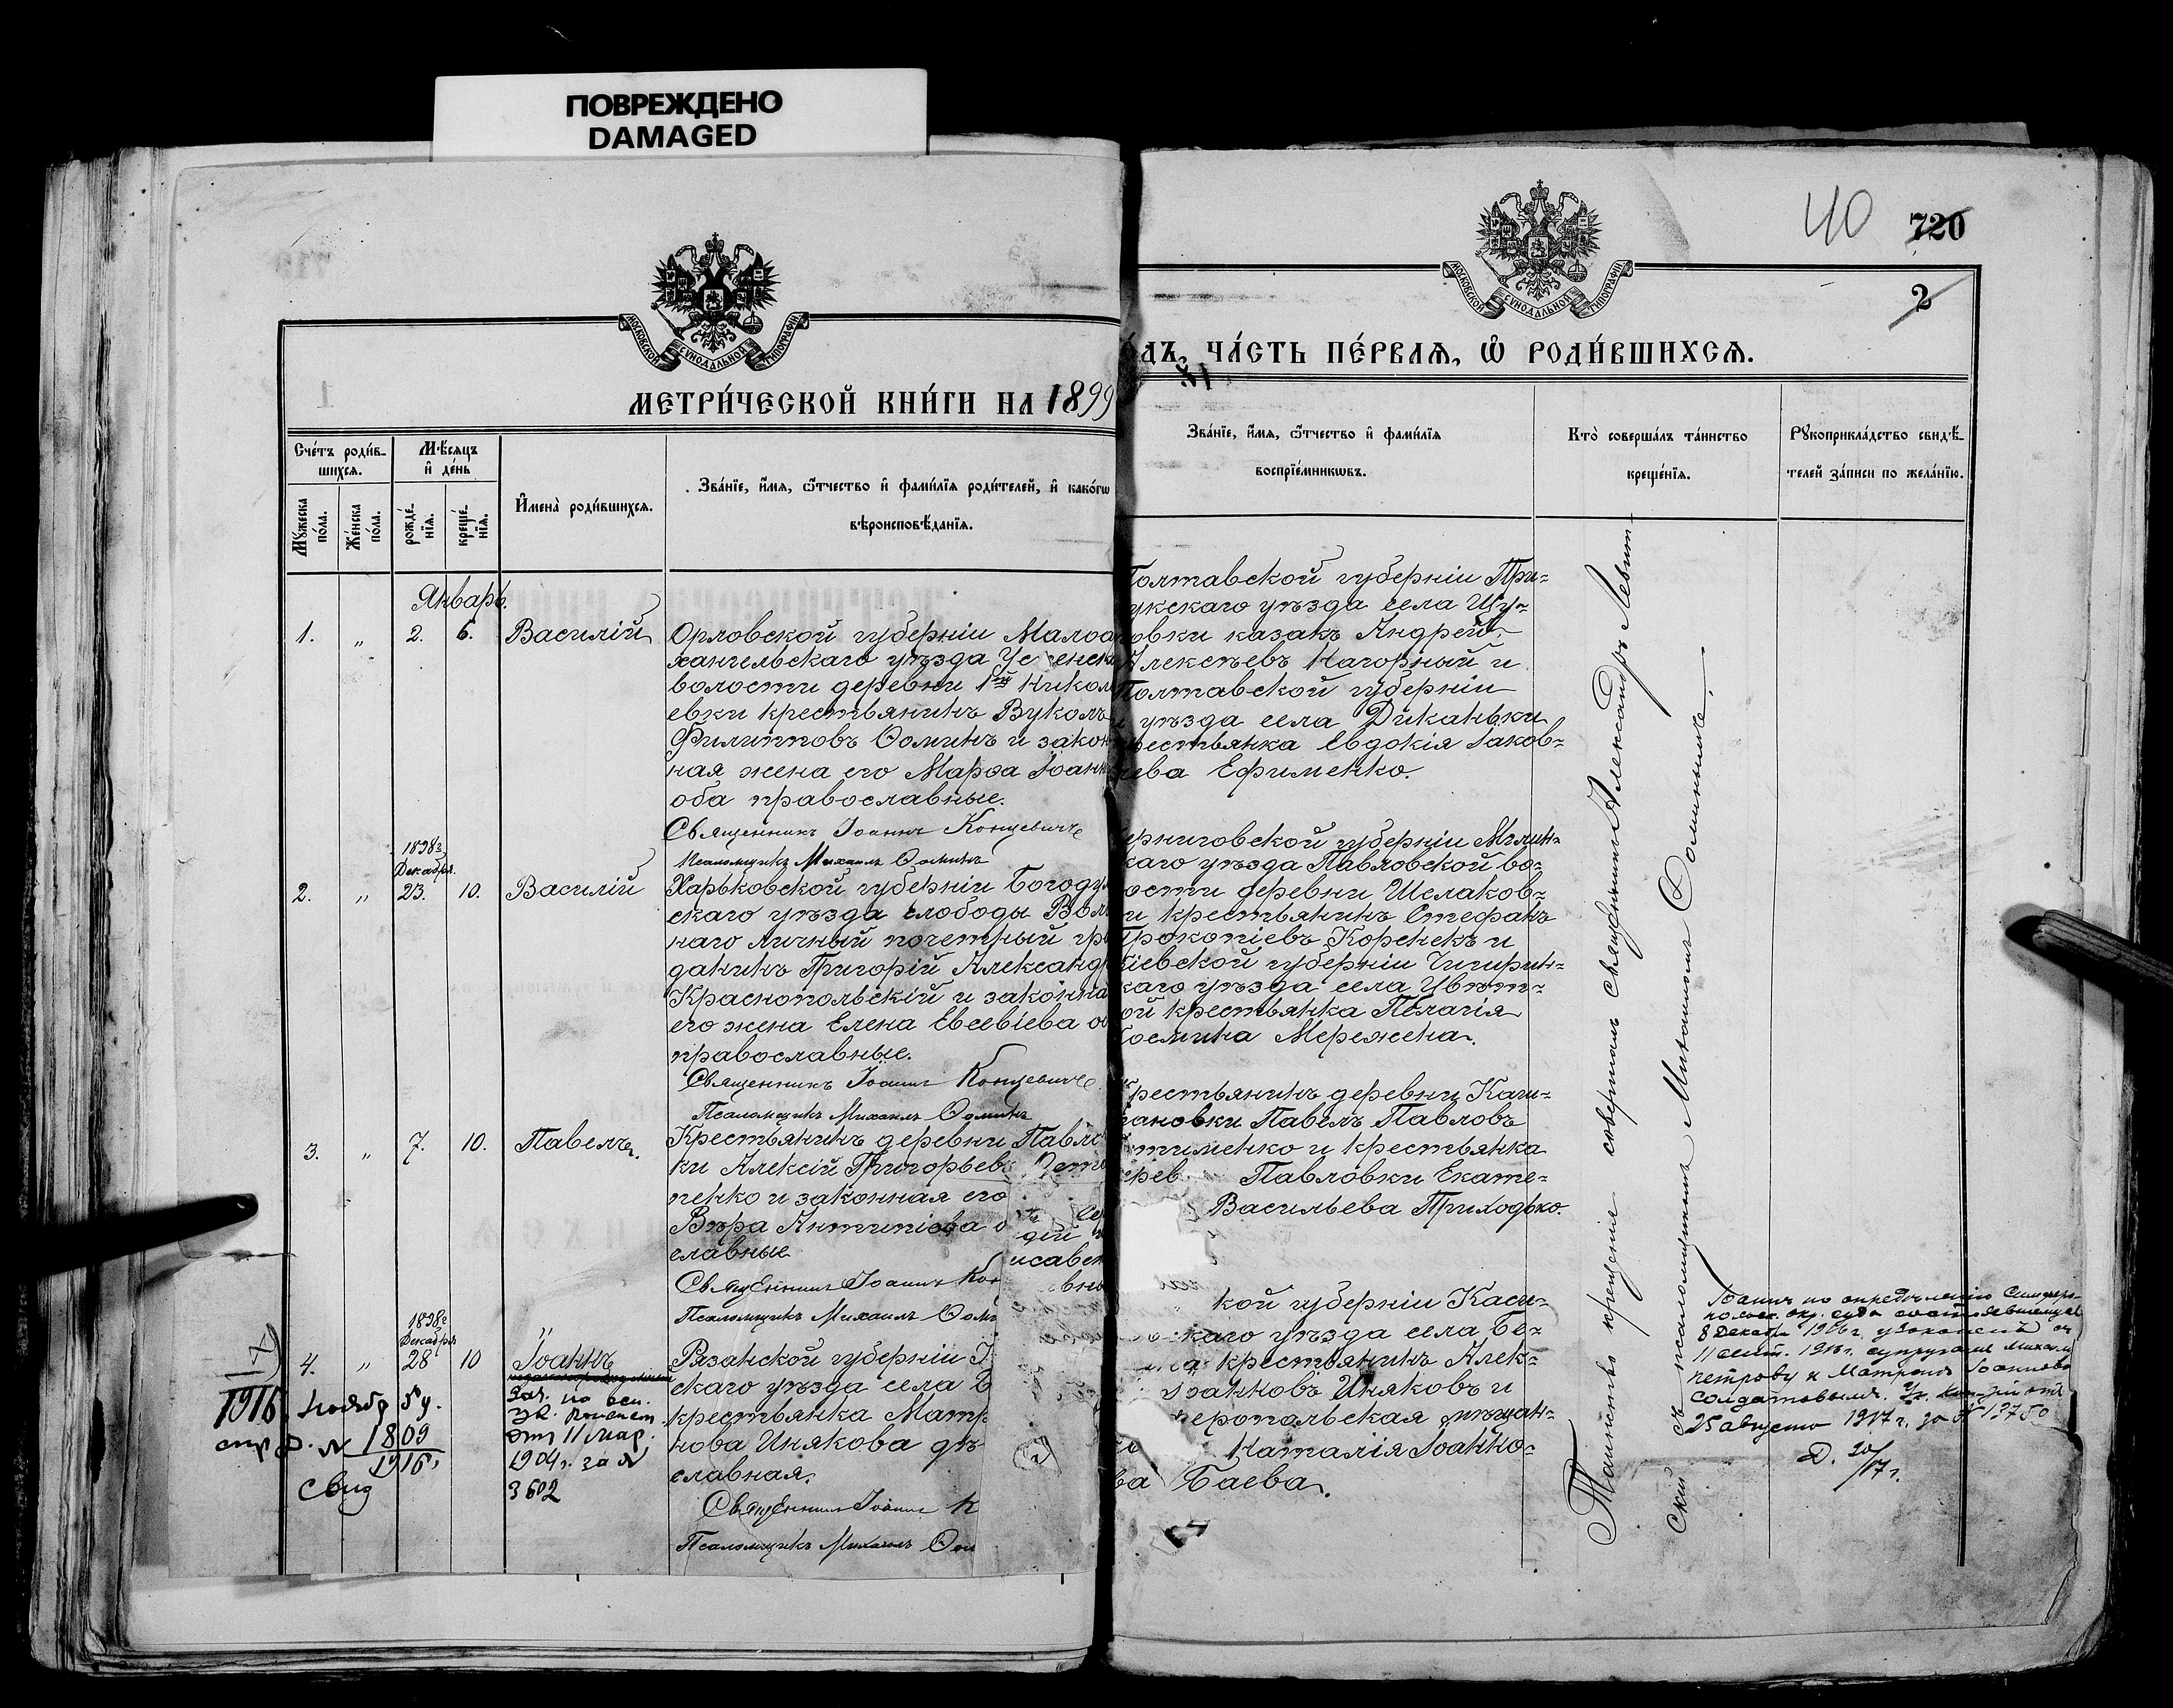 ПОВРЕЖДЕНО
DAMAGED
МОСКОВСКОЙ СУНОДАЛЬНОЙ ТИПОГРАФІИ
МЕТРИ́ЧЕСКОЙ КНИ́ГИ НА 1899
Сче́тъ роди́в-
шихсѧ.
Мѣ́сѧцъ
и҆ де́нь
Мꙋ́жеска
по́ла.
Же́нска
по́ла.
рожде́-
нїѧ.
креще́-
нїѧ.
И҆мена̀ роди́вшихсѧ.
Зва́нїе, и҆́мѧ, ѻ҆́тчество и҆ фами́лїѧ роди́телей, и҆ како́гѡ
вѣроисповѣ́данїѧ.
Январь.
1. „ 2. 6. Василій
Орловской губерніи Малоа
хангельскаго уѣзда Ус енск
волости деревни 1ой Никол
евки крестьянинъ Вуколъ
Филипповъ Ѳоминъ и закон
ная жена его Марѳа Іоанн
оба православные.
Священникъ Іоаннъ Концевичъ
Псаломщикъ Михаилъ Ѳоминъ
1898г.
Декабря.
2. „ 23. 10. Василій
Харьковской губерніи Богоду
скаго уѣзда слободы Вол
наго личный почетный гра
данинъ Григорій Александр
Краснопольскій и законна
его жена Елена Евсевіева о
православные.
Священникъ Іоаннъ Концевичъ
Псаломщикъ Михаилъ Ѳоминъ
3. „ 7. 10. Павелъ.
Крестьянинъ деревни Павло
ки Алексій Григорьевъ
пенко и законная его
Вѣра Антипіева о
славные
Священникъ Іоаннъ Кон
Псаломщикъ Михаилъ Ѳоми
дій
исавет
вны
1898г.
Декабрь
4. „ 28 10 Іоаннъ
Рязанской губерніи
скаго уѣзда села Б
крестьянка Матр
нова Инякова дѣ
славная.
Священникъ Іоаннъ К
Псаломщикъ Михаилъ Ѳом
1916 ноября 5 у.
№ 1809
1916г.
свид
отъ 11 Мар.
1904г. за №
3602
40
720
2
МОСКОВСКОЙ СУНОДАЛЬНОЙ ТИПОГРАФІИ
ДЪ, ЧА́СТЬ ПЕ́РВАѦ, Ѡ҆ РОДИ́ВШИХСѦ.
Зва́нїе, и҆́мѧ, ѻ҆́тчество и҆ фами́лїѧ
воспрїе́мникѡвъ.
Кто̀ соверша́лъ та́инство
креще́нїѧ.
Рꙋкоприкла́дство свидѣ́-
телей за́писи по жела́нїю.
Полтавской губерніи При-
лукскаго уѣзда села Щу-
ровки казакъ Андрей
Алексѣевъ Нагорный и
Полтавской губерніи
и уѣзда села Диканьки
крестьянка Евдокія Іаков-
лева Ефименко.
ерниговской губерніи Мглин-
скаго уѣзда Павловской во-
лости деревни Шелаков-
ки крестьянинъ Стефанъ
Прокопіевъ Корнекъ и
Кіевской губерніи Чигирин-
скаго уѣзда села Цвѣт-
ной крестьянка Пелагія
Косьмина Мережена.
Крестьянинъ деревни Каги-
лановки Павелъ Павловъ
тименко и крестьянка
дерев Павловки Екате-
Васильева Приходько.
кой губерніи Каси-
скаго уѣзда села Бе-
крестьянинъ Алек-
Іоанновъ Иняковъ и
ферапольская мѣщан-
Наталія Іоанно-
ва Баева.
Таинство крещенія совершалъ священникъ Александръ Левит-
скій съ псаломщикомъ Михаиломъ Ѳоминымъ.
Іоаннъ по опредѣленію Симферо-
польск. окр. суда состоявшемуся
8 Декабря 1916г. узаконенъ съ
11 сент. 1916г. супругами Михаил.
Петрову и Матреной Іоанновой
Солдатовыми.
25 августа 1917г. за № 13750
Д. 20/17г.